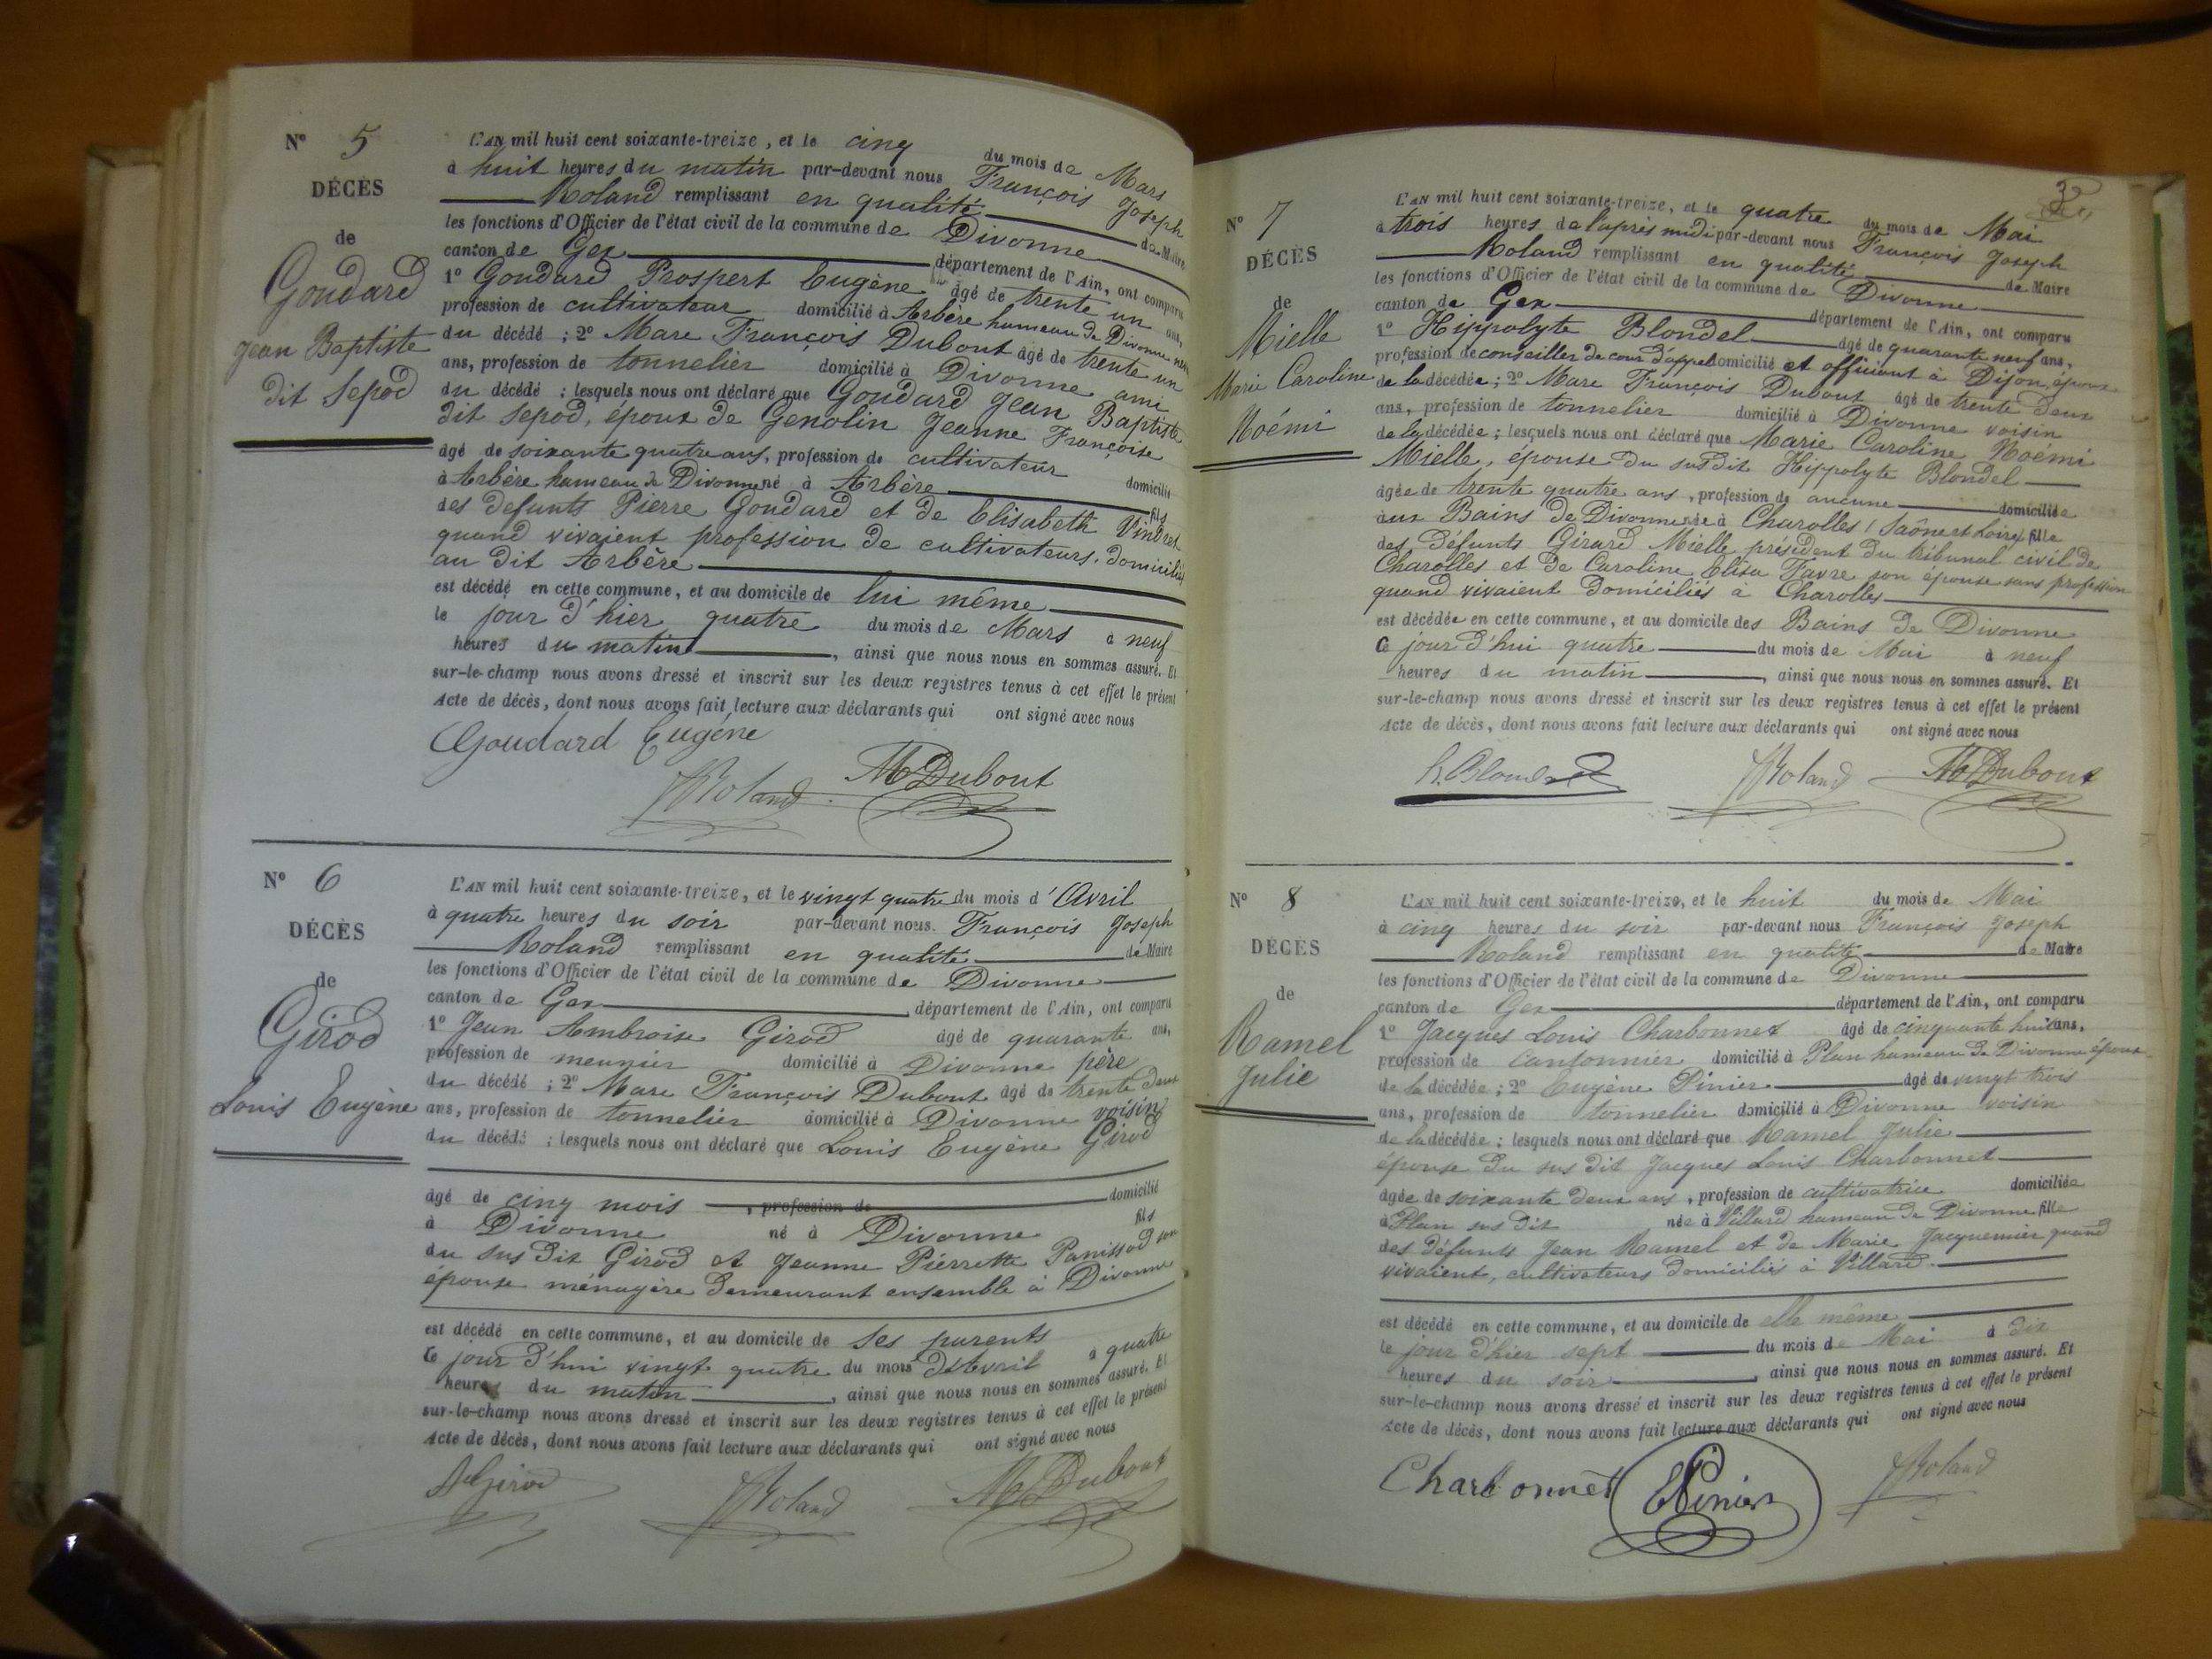 Nº 5
DÉCÈS
de
Goudard
Jean Baptiste
dit Sepod
L'AN mil huit cent soixante-treize, et le cinq du mois de Mars
à huit heures du matin par-devant nous François Joseph
Roland remplissant en qualité de Maire
les fonctions d'Officier de l'état civil de la commune de Divonne
canton de Gex département de l'Ain, ont comparu
1º Goudard Prospert Eugène âgé de trente un ans,
profession de cultivateur domicilié à Arbère hameau de Divonne
du décédé ; 2º Marc François Dubout âgé de trente un
ans, profession de tonnelier domicilié à Divonne ami
du décédé ; lesquels nous ont déclaré que Goudard Jean Baptiste
dit Sepod, époux de Genolin Jeanne Françoise
âgé de soixante quatre ans, profession de cultivateur domicilié
à Arbère hameau de Divonne né à Arbère fils
des defunts Pierre Goudard et de Elisabeth
quand vivaient profession de cultivateurs, domiciliés
au dit Arbère
est décédé en cette commune, et au domicile de lui même
le jour d'hier quatre du mois de Mars à neuf
heures du matin, ainsi que nous nous en sommes assuré. Et
sur-le-champ nous avons dressé et inscrit sur les deux registres tenus à cet effet le présent
Acte de décès, dont nous avons fait lecture aux déclarants qui ont signé avec nous
Goudard Eugène
JRoland MDubout
Nº 6
DÉCÈS
de
Girod
Louis Eugène
L'AN mil huit cent soixante-treize, et le vingt quatre du mois d'Avril
à quatre heures du soir par-devant nous François Joseph
Roland remplissant en qualité de Maire
les fonctions d'Officier de l'état civil de la commune de Divonne
canton de Gex département de l'Ain, ont comparu
1º Jean Ambroise Girod âgé de quarante ans,
profession de meunier domicilié à Divonne père
du décédé ; 2º Marc François Dubout âgé de trente deux
ans, profession de tonnelier domicilié à Divonne voisin
du décédé ; lesquels nous ont déclaré que Louis Eugène Girod
âgé de cinq mois, profession de domicilié
à Divonne né à Divonne fils
du sus dit Girod et Jeanne Pierrette Panissod son
épouse ménagère demeurant ensemble à Divonne
est décédé en cette commune, et au domicile de ses parents
ce jour d'hui vingt quatre du mois d'Avril à quatre
heures du matin, ainsi que nous nous en sommes assuré. Et
sur-le-champ nous avons dressé et inscrit sur les deux registres tenus à cet effet le présent
Acte de décès, dont nous avons fait lecture aux déclarants qui ont signé avec nous
AGirod JRoland MDubout
3
Nº 7
DÉCÈS
de
Mielle
Marie Caroline
Noémi
L'AN mil huit cent soixante-treize, et le quatre du mois de Mai
à trois heures de l'après midi par-devant nous François Joseph
Roland remplissant en qualité de Maire
les fonctions d'Officier de l'état civil de la commune de Divonne
canton de Gex département de l'Ain, ont comparu
1º Hippolyte Blondel âgé de quarante neuf ans,
profession de conseiller de cour d'appel domicilié et officiant à Dijon, époux
de la décédée ; 2º Marc François Dubout âgé de trente deux
ans, profession de tonnelier domicilié à Divonne voisin
de la décédée ; lesquels nous ont déclaré que Marie Caroline Noémi
Mielle, épouse du susdit Hippolyte Blondel
âgée de trente quatre ans, profession de aucune domiciliée
aux Bains de Divonne née à Charolles (Saône et Loire) fille
des défunts Girard Mielle président du tribunal civil de
Charolles et de Caroline Elisa Favre son épouse sans profession
quand vivaient domiciliés à Charolles
est décédée en cette commune, et au domicile des Bains de Divonne
ce jour d'hui quatre du mois de Mai à neuf
heures du matin, ainsi que nous nous en sommes assuré. Et
sur-le-champ nous avons dressé et inscrit sur les deux registres tenus à cet effet le présent
Acte de décès, dont nous avons fait lecture aux déclarants qui ont signé avec nous
h. Blondel JRoland MDubout
Nº 8
DÉCÈS
de
Ramel
Julie
L'AN mil huit cent soixante-treize, et le huit du mois de Mai
à cinq heures du soir par-devant nous François Joseph
Roland remplissant en qualité de Maire
les fonctions d'Officier de l'état civil de la commune de Divonne
canton de Gex département de l'Ain, ont comparu
1º Jacques Louis Charbonnet âgé de cinquante huit ans,
profession de cantonnier domicilié à Plan hameau de Divonne époux
de la décédée ; 2º Eugène Pinier âgé de vingt trois
ans, profession de tonnelier domicilié à Divonne voisin
de la décédée ; lesquels nous ont déclaré que Ramel Julie
épouse du sus dit Jacques Louis Charbonnet
âgée de soixante deux ans, profession de cultivatrice domiciliée
à Plan sus dit née à Villard hameau de Divonne fille
des défunts Jean Ramel et de Marie Jacquemier quand
vivaient, cultivateurs domiciliés à Villard
est décédé en cette commune, et au domicile de elle même
le jour d'hier sept du mois de Mai à dix
heures du soir, ainsi que nous nous en sommes assuré. Et
sur-le-champ nous avons dressé et inscrit sur les deux registres tenus à cet effet le présent
Acte de décès, dont nous avons fait lecture aux déclarants qui ont signé avec nous
Charbonnet EPinier JRoland